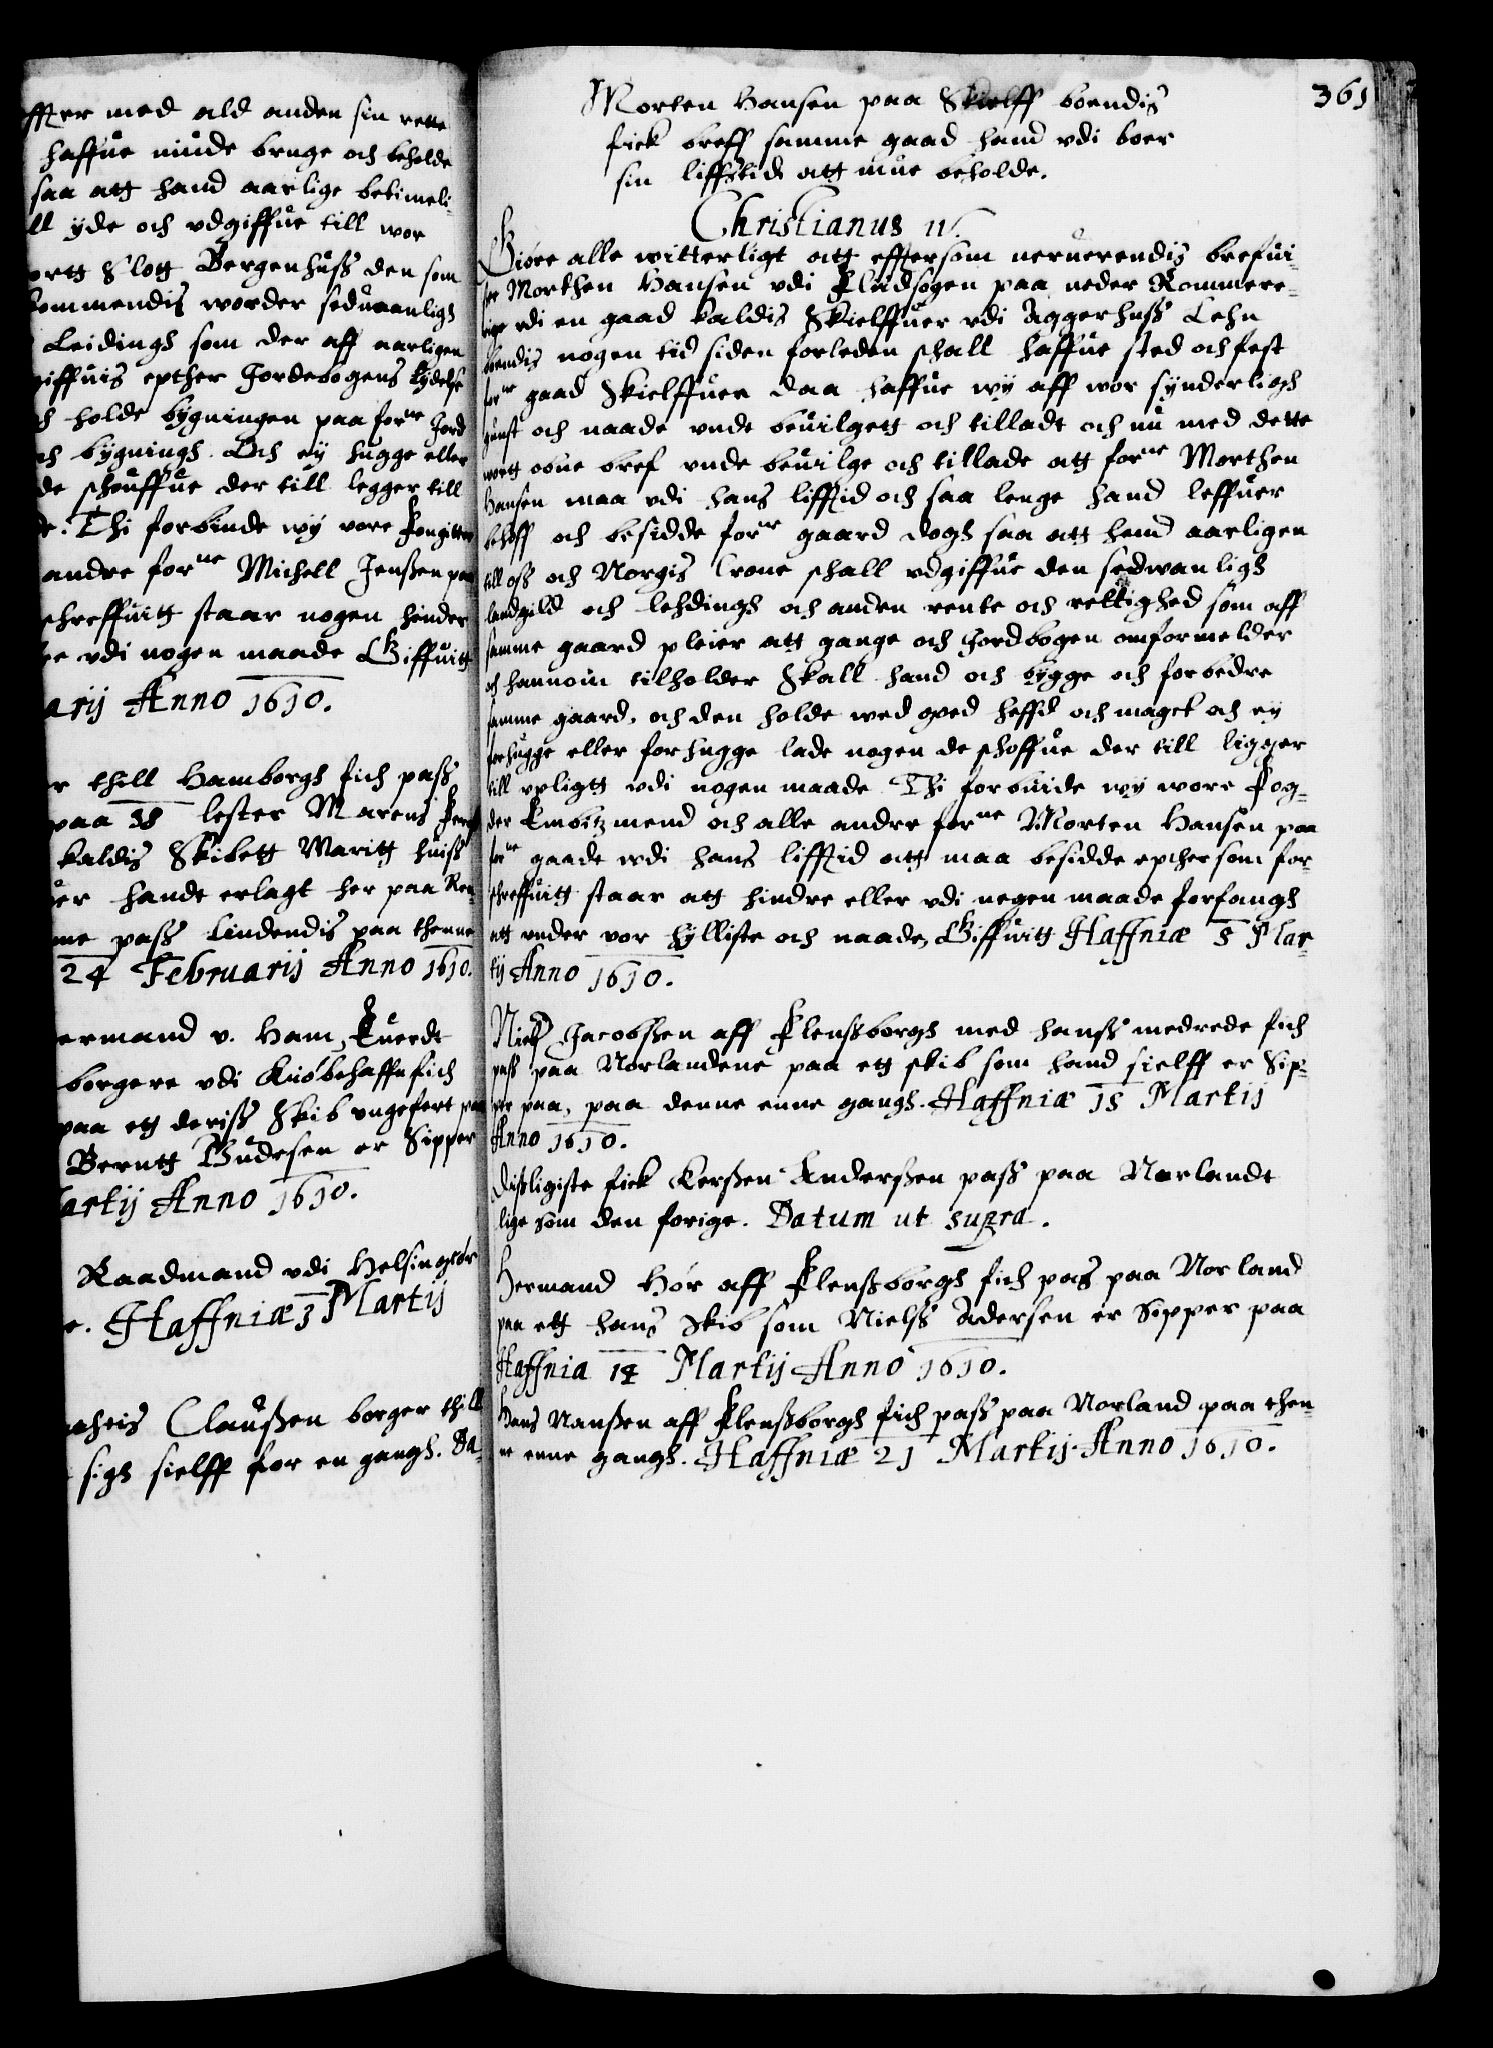 ffter med ald anden sin rette
haffue minde bruge och beholde
saa att hand aarlige betimeli-
ll yde och vdgiffue till vor
ortt Slott Bergenhuss den som
kommendis worder seduaanligh
Leidingh som der aff aarligen
giffuis epther Jordebogens lydelse
ch holde bygningen paa forne Jord
och bygningh. Och ey hugge eller
de schouffue der till legger till
de. Thi forbinde wy vore Fougitter
andre forne Michell Jenssen paa
schreffuitt staar nogen hinder
ee vdi nogen maade Giffuitt
arij Anno 1610.
er thill Hamborgh fich pass
paa 38 lester Marens
kaldis Skibett Maritt huiss
uer handt erlagt her paa Ren-
me pass lindendis paa thenne
24 Februarij Anno 1610.
ermand v. Ham, Euerdt
borgere vdi Kiøbehaffn fich
paa ett deriss Skib ungefert paa
Berntt Gudesen er Sipper
artij Anno 1610.
Raadmand vdi Helsingør
e. Haffniæ 3 Martij
athis Claussen borger thill
sigh sielff for en gangh. Da-
361
Morten Hansen paa Skielff boendis
fick breff samme gaad hand vdi boer
sin liffstid att mue beholde.
Christianus 4.
Giøre alle witterligt att efftersom neruerendis brefui-
ser Morthen Hansen vdi Fladsogen paa neder Rommere-
rige vdi en gaad kaldis Skielffuer vdi Aggerhuss Lehn
boendis nogen tid siden forleden schall haffue sted och fest
forne gaad Skielffuer daa haffue wy aff wor synderligh
gunst och naade vnde beuilgett och tilladt och nu med dette
wortt obne bref vnde beuilge och tillade att forne Morthen
Hansen maa vdi hans lifftid och saa lenge hand leffuer
behoff och besidde forne gaard dogh saa att hand aarligen
till oss och Norgis Crone schall vdgiffue den sedwanligh
landgild och lehdingh och anden rente och rettighed som aff
samme gaard pleier att gange och Jordbogen omformelder
och hannom tilholder Skall hand och bygge och forbedre
samme gaard, och den holde wed goed heffd och magt och ey
forhugge eller forhugge lade nogen de schoffue der till ligger
till vpligtt vdi nogen maade Thi forbiude wy wore Fog-
der Embitzmend och alle andre forne Morten Hansen paa
forne gaade wdi hans liffid att maa besidde epther som for-
schreffuitt staar att hindre eller vdi nogen maade forfangh
att vnder vor hylliste och naade, Giffuitt Haffniæ 8 Mar-
tij Anno 1610.
Niels Jacobssen aff Flenssborgh med hanss medrede fich
pass paa Norlandene paa ett skib som hand sielff er Sip-
per paa, paa denne enne gangh. Haffniæ 18 Martij
Anno 1610.
Disligiste fick Kerssen Anderssen pass paa Norlandt
lige som den forige. Datum ut supra.
Hermand Hør aff Flenssborgh fich pas paa Norland
paa ett hans Skib som Nielss Adersen er Sipper paa
Haffnia 14 Martij Anno 1610.
Hans Nanssen aff Flenssborgh fich pass paa Norland paa then-
ne enne gangh. Haffniæ 21 Martij Anno 1610.